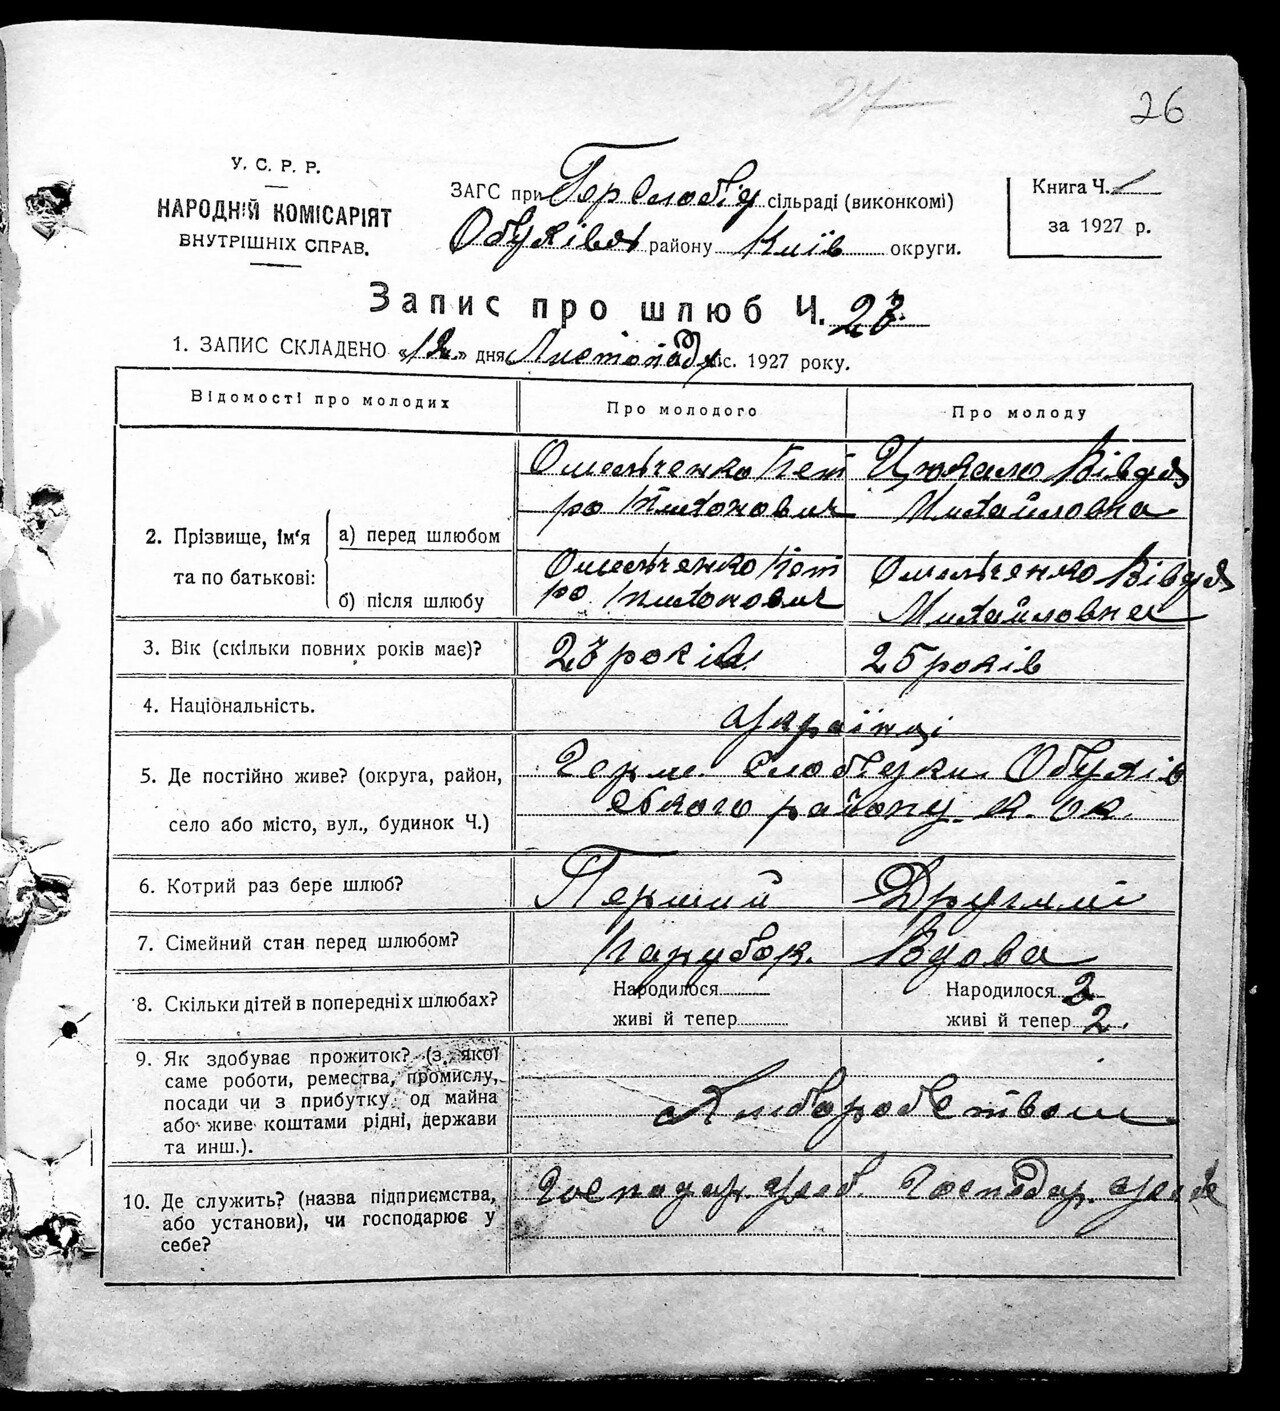 27
26
У. С. Р. Р.
НАРОДНІЙ КОМІСАРІЯТ
ВНУТРІШНІХ СПРАВ.
ЗАГС при Гер Слобіду сільраді (виконкомі)
Обухівськ району Київ округи.
Книга Ч. 1
за 1927 р.
Запис про шлюб Ч. 27.
1. ЗАПИС СКЛАДЕНО « » дня Листопаду міс. 1927 року.
Відомості про молодих
Про молодого
Про молоду
2. Прізвище, ім'я
та по батькові:
а) перед шлюбом
Омельченко Пет
ро Тихонович
Вівдя
Михайловна
б) після шлюбу
Омельченко Пет
ро Тихонович
Омельченко Вівдя
Михайловна
3. Вік (скільки повних років має)?
27 років
25 років
4. Національність.
Українці
5. Де постійно живе? (округа, район,
село або місто, вул., будинок Ч.)
Герм. Слобідка Обухів
ського району К. ок.
6. Котрий раз бере шлюб?
Перший
Другий
7. Сімейний стан перед шлюбом?
Парубок.
Вдова
8. Скільки дітей в попередніх шлюбах?
Народилося
живі й тепер
Народилося 2
живі й тепер 2.
9. Як здобуває прожиток? (з якої
саме роботи, ремества, промислу,
посади чи з прибутку од майна
або живе коштами рідні, держави
та инш.).
Хліборобством
10. Де служить? (назва підприємства,
або установи), чи господарює у
себе?
Господар. у себ.
Господар. у себе